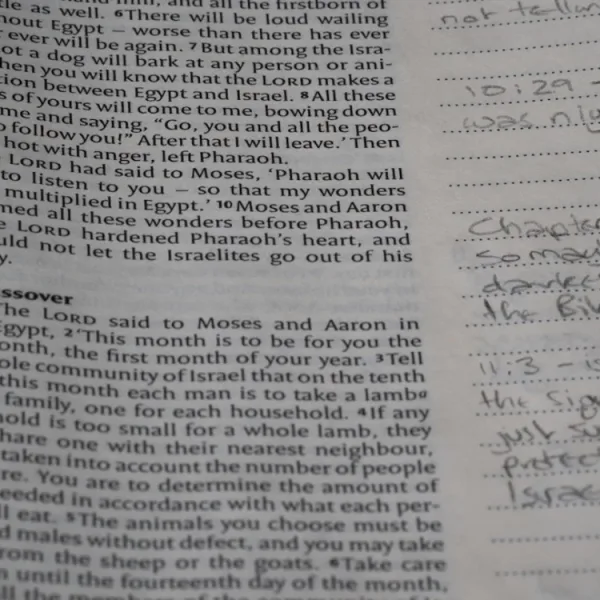 tle as well. 6There will be loud wailing
out Egypt – worse than there has ever
ever will be again. 7 But among the Isra-
ot a dog will bark at any person or ani-
hen you will know that the LORD makes a
ion between Egypt and Israel. 8 All these
s of yours will come to me, bowing down
me and saying, “Go, you and all the peo-
follow you!” After that I will leave.’ Then
hot with anger, left Pharaoh.
LORD had said to Moses, ‘Pharaoh will
to listen to you – so that my wonders
multiplied in Egypt.’ 10 Moses and Aaron
med all these wonders before Pharaoh,
e LORD hardened Pharaoh’s heart, and
uld not let the Israelites go out of his
y.
ssover
he LORD said to Moses and Aaron in
gypt, 2 ‘This month is to be for you the
onth, the first month of your year. 3 Tell
ole community of Israel that on the tenth
this month each man is to take a lamba
family, one for each household. 4 If any
old is too small for a whole lamb, they
hare one with their nearest neighbour,
taken into account the number of people
re. You are to determine the amount of
eeded in accordance with what each per-
ll eat. 5 The animals you choose must be
d males without defect, and you may take
rom the sheep or the goats. 6 Take care
n until the fourteenth day of the month,
all the members of the community of
not
10:29 -
was
Chapter
darkne
the Bib
11:3 -
the Sig
just
protec
Israe